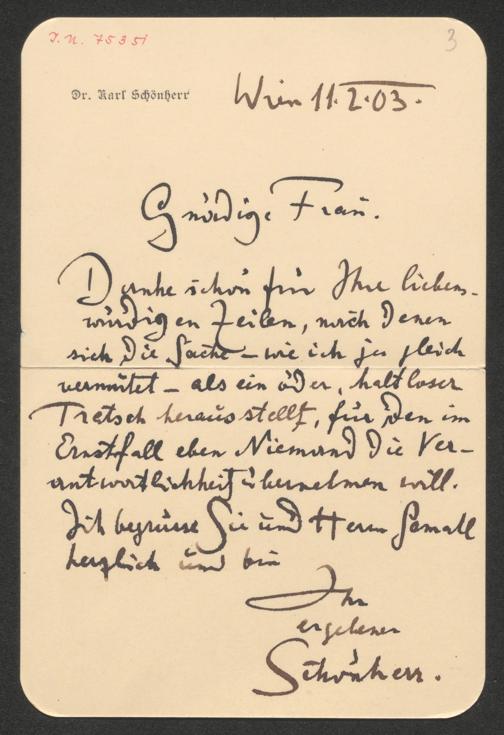 I. N. 75351
3
Dr. Karl Schönherr
Wien 11.2.03.
Gnädige Frau.
Danke schön für Ihre liebens-
würdigen Zeilen, nach denen
sich die Sache – wie ich ja gleich
vermutet – als ein öder, haltloser
Tratsch herausstellt, für den im
Ernstfall eben Niemand die Ver-
antwortlichkeit übernehmen will.
Ich begrüsse Sie und Herrn Gemall
herzlich und bin
Ihr
ergebener
Schönherr.